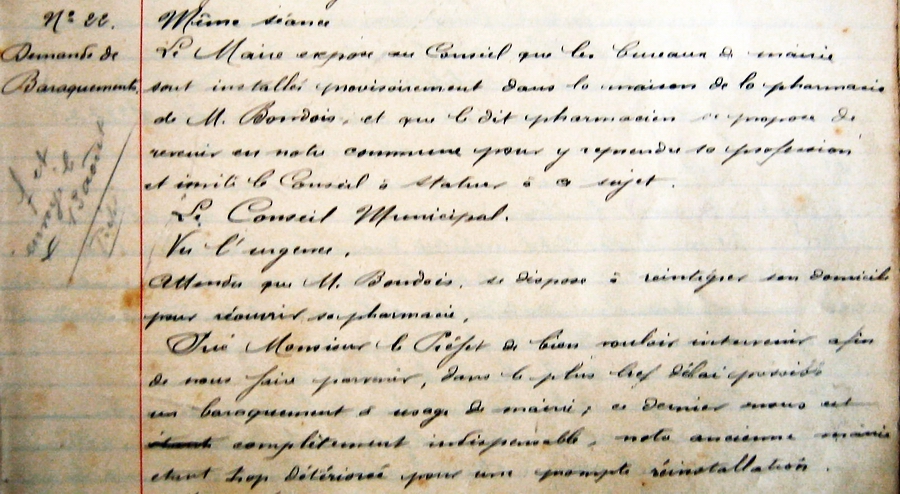 Nº 22. Même séance
Demande de
Baraquements.
Le Maire expose au Conseil que les bureaux de mairie
sont installés provisoirement dans la maison de la pharmacie
de M. Bourdois, et que le dit pharmacien se propose de
revenir en notre commune pour y reprendre sa profession
et invite le Conseil à statuer à ce sujet.
Le Conseil Municipal.
Vu l'urgence,
Attendu que M. Bourdois, se dispose à réintégrer son domicile
pour réouvrir sa pharmacie,
Prie Monsieur le Préfet de bien vouloir intervenir afin
de nous faire parvenir, dans le plus bref délai possible
un baraquement à usage de mairie; ce dernier nous est
complètement indispensable, notre ancienne mairie
étant trop détériorée pour une prompte réinstallation.